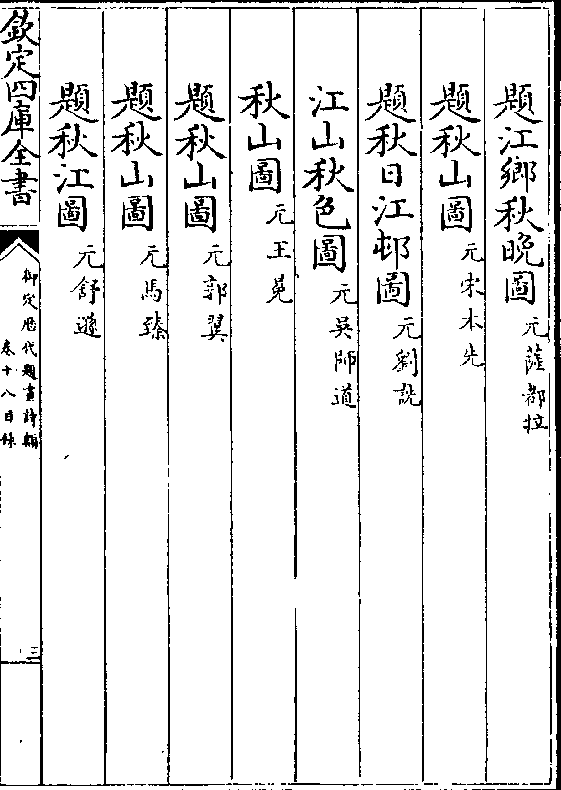 題江鄉秋晚圖 元薩都拉
題秋山圖 元宋木先
題秋日江邨圖 元劉詵
江山秋色圖 元吳師道
秋山圖 元王冕
題秋山圖 元郭翼
題秋山圖 元馬臻
題秋江圖 元舒遜
欽定四庫全書
御定歴代題畫詩類
卷十八目錄
三